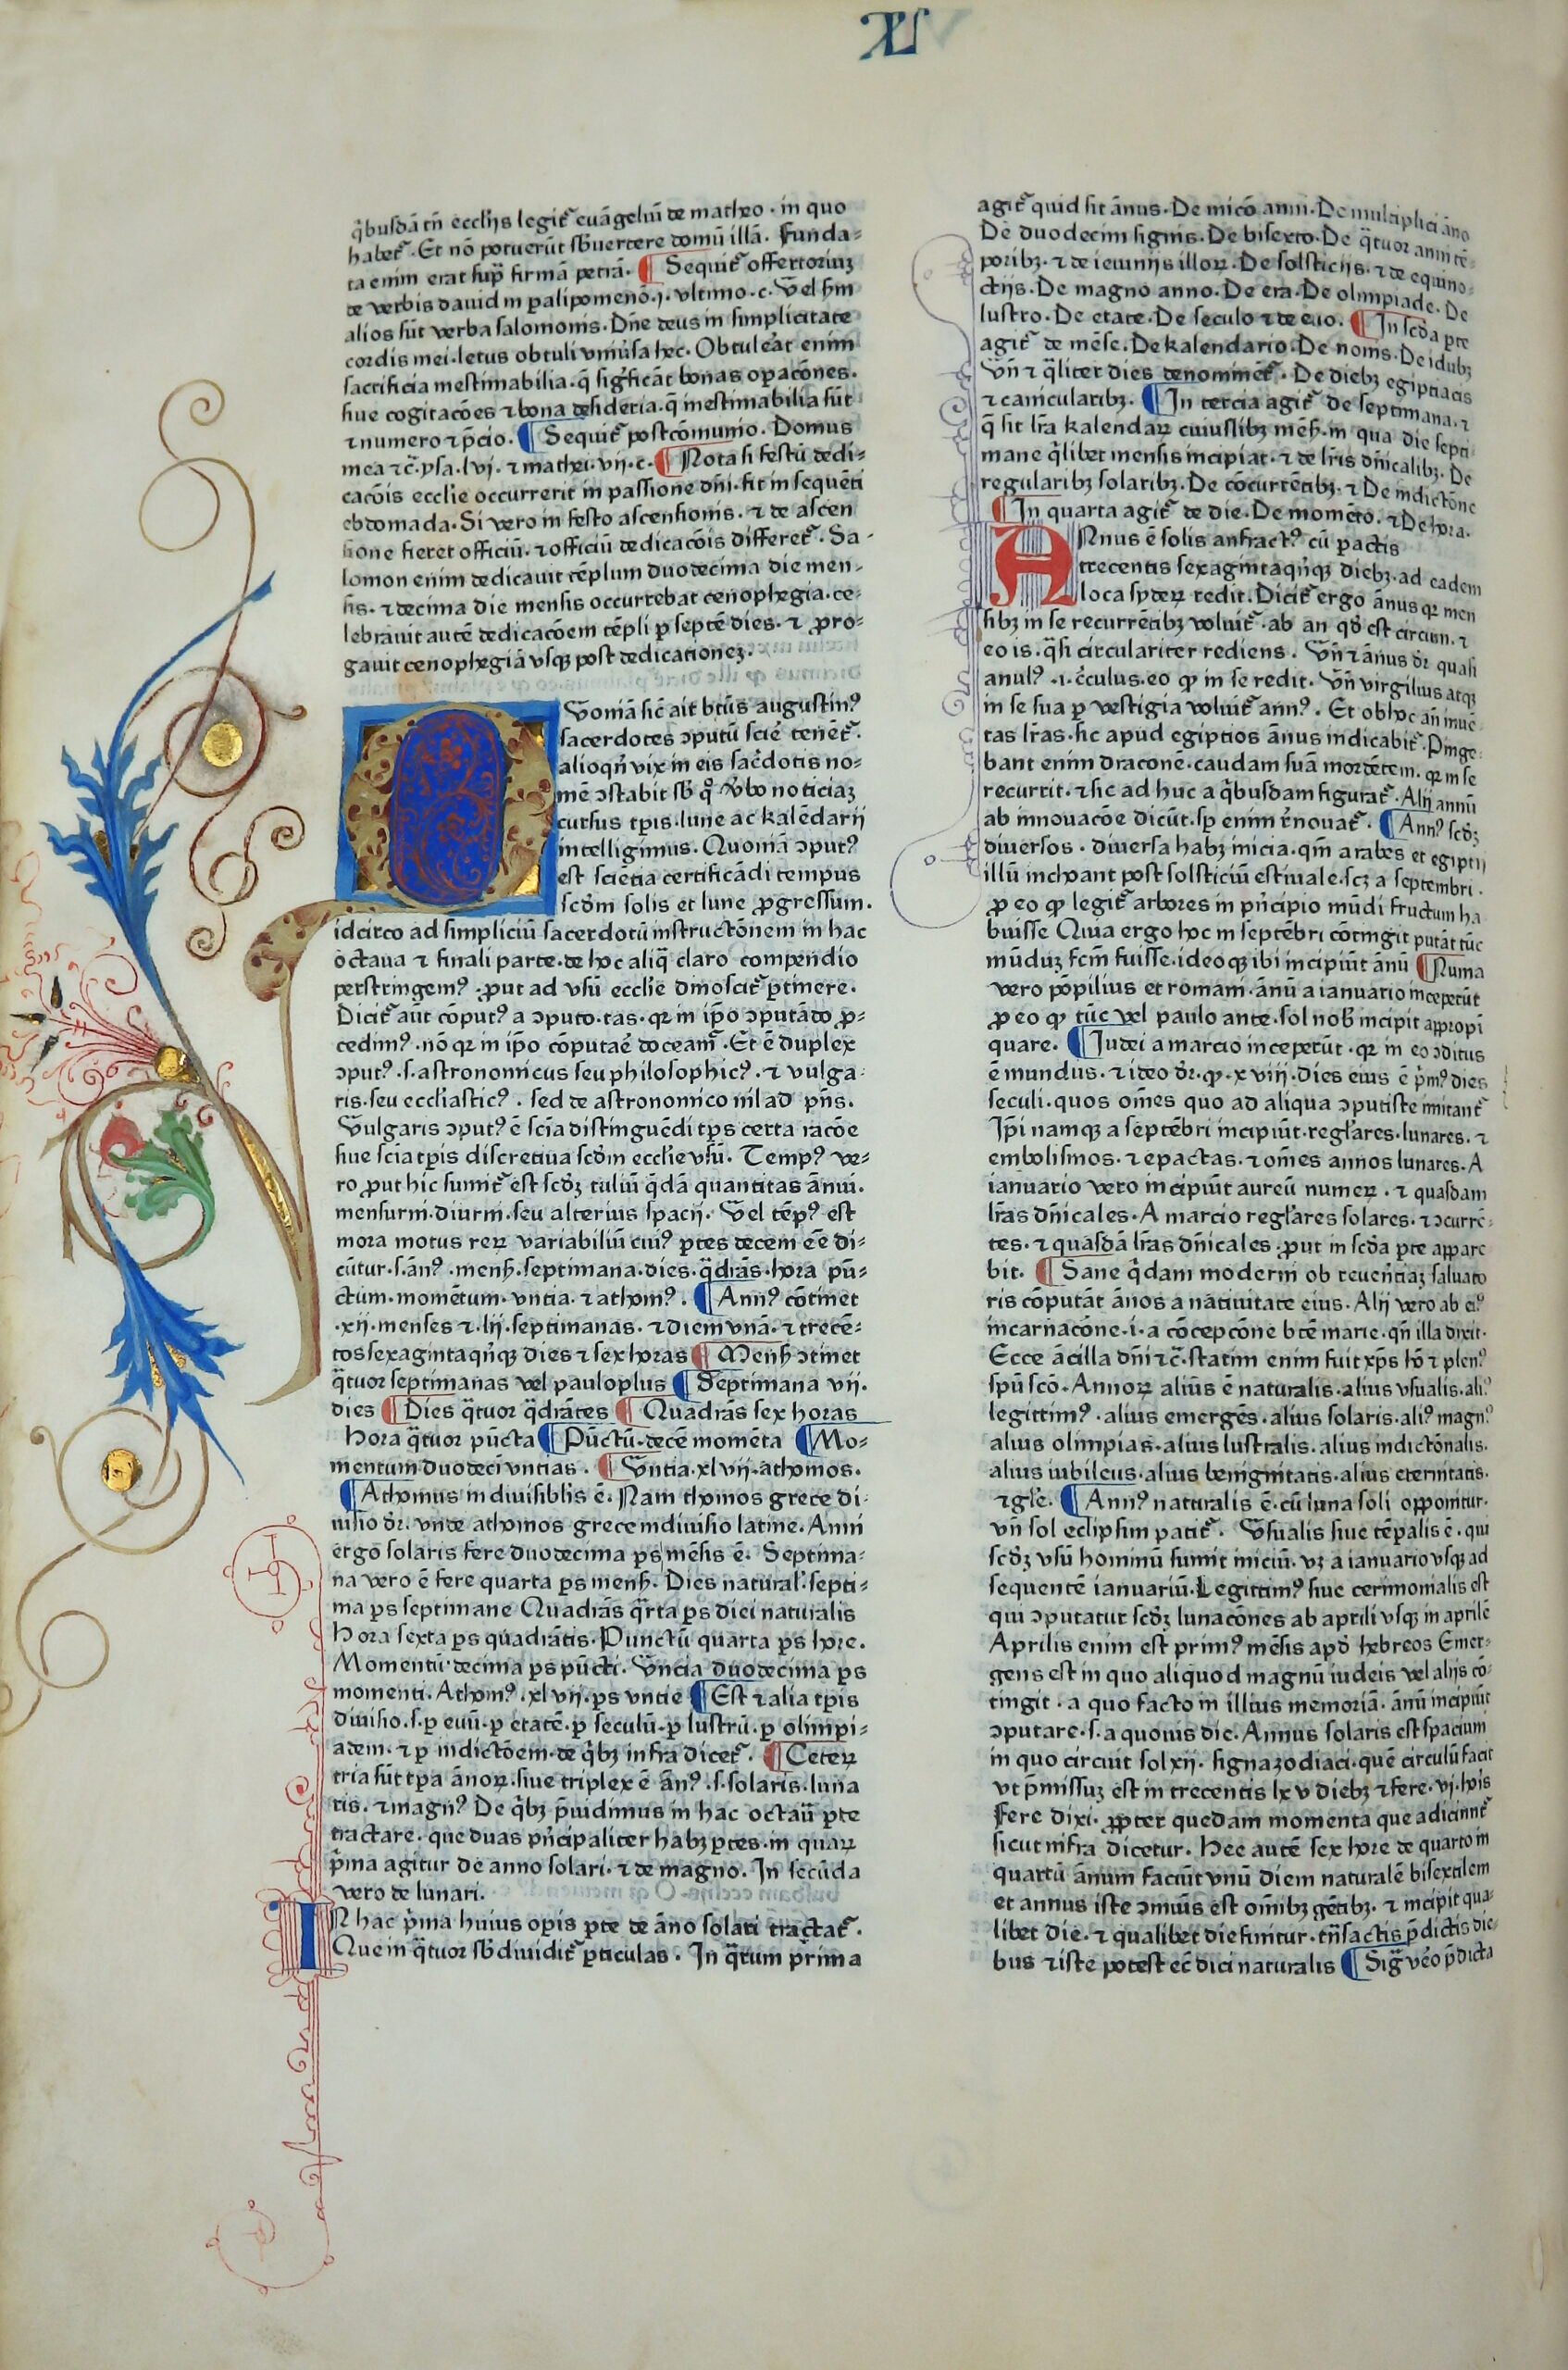 XL
q̇busdā tn̄ ecclijs legit᷑ euāgeliū de matheo · in quo
habet᷑ · Et nō potuerūt sb̄uertere domū illā. Funda⸗
ta enim erat sup̄ firmā petrā. ¶ Sequit᷑ offertoriuꝫ
de verbis dauid in palipomenō·j· vltimo ·c· Vel hm̄
alios sūt verba salomonis. Dn̄e deus in simplicitate
cordis mei·letus obtuli vniu̇sa hec· Obtulėāt enim
sacrificia inestimabilia·q̄ sig̓ficāt bonas oꝑacōnes.
siue cogitacōes ⁊ bona desideria·q̄ inestimabilia sūt
⁊ numero ⁊ p̄cio. ¶ Sequit᷑ postcōmunio. Domus
mea ⁊c̄·ysa·lvj· ⁊ mathei·vij·c· ¶ Nota si festū dedi⸗
cacōis ecclie occurrerit in passione dn̄i·fit in sequēti
ebdomada· Si vero in festo ascensionis· ⁊ de ascen
sione fieret officiū· ⁊ officiū dedicacōis differet᷑ · Sa⸗
lomon enim dedicauit tēplum duodecima die men⸗
sis· ⁊ decima die mensis occurrebat cenophegia·ce⸗
lebrauit autē dedicacōem tēpli ꝑ septē dies· ⁊ ꝓro⸗
gauit cenophegiā vsqꝫ post dedicationeꝫ.
Voniā sic̄ ait btūs augustin⁹
sacerdotes ↄputū scie᷑ tenēt᷑.
alioqn̄ vix in eis sac̓dotis no⸗
mē ↄstabit sb̄ qͦ v̓bo noticiaꝫ
cursus tꝑis·lune ac kalēdarij
intelligimus· Quoniā ↄput⁹
est sciētia certificādi tempus
scd̓m solis et lune ꝓgressum.
idcirco ad simpliciū sacerdotū instructōnem in hac
octaua ⁊ finali parte·de hoc aliq̄ claro compendio
perstringem⁹ ·ꝓut ad vsū ecclie dinoscit᷑ ꝑtinere.
Dicit᷑ aūt cōput⁹ a ↄputo·tas· qꝛ in ip̄o ↄputādo ꝓ⸗
cedim⁹ ·nō qꝛ in ip̄o cōputae᷑ doceam᷑ · Et ē duplex
ↄput⁹ ·s·astronomicus seu philosophic⁹ · ⁊ vulga⸗
ris·seu eccliastic⁹ · sed de astronomico nil ad pn̄s.
Vulgaris ↄput⁹ ē scīa distinguēdi tꝑs certa racōe
siue scīa tꝑis discretiua scd̓m ecclie vsū. Temp⁹ ve⸗
ro ꝓut hic sumit᷑ est scd̓ꝫ tuliū q̄dā quantitas ānui.
mensurni·diurni·seu alterius spacij. Vel tēp⁹ est
mora motus reꝝ variabiliū cui⁹ ꝑtes decem eē di⸗
cūtur·s·ān⁹ ·mens̄·septimana·dies·q̄drās·hora pū⸗
ctum·momētum·vntia· ⁊ athom⁹. ¶ Ann⁹ cōtinet
·xij·menses ⁊·lij·septimanas· ⁊ diem vnā· ⁊ trecē⸗
tos sexagintaqn̓qꝫ dies ⁊ sex horas ¶ Mens̄ ↄtinet
q̄tuor septimanas vel pauloplus ¶ Septimana vij.
dies ¶ Dies q̄tuor q̄drātes ¶ Quadrās sex horas
Hora q̄tuor pūcta ¶ Pūctū·decē momēta ¶ Mo⸗
mentum·duodeci vntias. ¶ Vntia·xlvij·athomos.
¶ Athomus indiuisiblis ē. Nam thomos grece di⸗
uisio dr̄. vnde athomos grece indiuisio latine. Anni
ergo solaris fere duodecima ps mēsis ē. Septima⸗
na vero ē fere quarta ꝑs mens̄· Dies natural̓·septi⸗
ma ꝑs septimane Quadrās q̄rta ꝑs diei naturalis
Hora sexta ꝑs quadrātis· Punctū quarta ꝑs hore.
Momentū·decima ꝑs pūcti· Vncia duodecima ꝑs
momenti. Athom⁹ ·xlvij·ꝑs vntie ¶ Est ⁊ alia tꝑis
diuisio·s·ꝑ euū·ꝑ etatē·ꝑ seculū·ꝑ lustrū·ꝑ olimpi⸗
adem· ⁊ ꝑ indictōem·de q̇bꝫ infra dicet᷑. ¶ Ceteꝝ
tria sūt tꝑa ānoꝝ·siue triplex ē ān⁹ ·s·solaris·luna
ris· ⁊ magn⁹ De q̇bꝫ p̄uidimus in hac octaū ꝑte
tractare·que duas pn̓cipaliter habꝫ ꝑtes·in quaꝝ
p̄ma agitur de anno solari· ⁊ de magno. In secūda
vero de lunari.
IN hac p̄ma huius opis ꝑte de āno solari tractat᷑.
Que in q̄tuor sb̄diuidit᷑ ꝑticulas. In q̄tum prima
agit᷑ quid sit ānus· De micō anni· De multiplici āno
De duodecim signis. De bisexto· De q̄tuor anni tē⸗
poribꝫ· ⁊ de ieiunijs illoꝝ· De solsticijs· ⁊ de equino⸗
ctijs· De magno anno· De era· De olimpiade· De
lustro· De etate· De seculo ⁊ de euo. ¶ In scd̓a ꝑte
agit᷑ de mēse. De kalendario· De nonis· De idubꝫ
Vn̄ ⁊ q̄liter dies denominet᷑ · De diebꝫ egiptiacis
⁊ canicularibꝫ. ¶ In tercia agit᷑ de septimana· ⁊
q̄ sit lr̄a kalendaꝝ cuiuslibꝫ mēs̄·in qua die septi
mane q̄libet mensis incipiat· ⁊ de lr̄is dn̄icalibꝫ· De
regularibꝫ solaribꝫ. De cōcurrētibꝫ· ⁊ De indictōne
¶ In quarta agit᷑ de die· De momēto· ⁊ De hora.
ANnus ē solis anfract⁹ cū ꝑactis
trecentis sexagintaqn̓qꝫ diebꝫ·ad eadem
loca syderꝝ redit. Dicit᷑ ergo ānus qꝛ men
sibꝫ in se recurrētibꝫ voluit᷑ ·ab an qd̓ est circum· ⁊
eo is·q̄si circulariter rediens. Vn̄ ⁊ ānus dr̄ quasi
anul⁹ ·i·c̓culus·eo ꝙ in se redit· Vn̄ virgilius atqꝫ
in se sua ꝑ vestigia voluit᷑ ann⁹ · Et ob hoc an̄ inuē
tas lr̄as·sic apud egiptios ānus indicabit᷑ ·Pinge⸗
bant enim draconē·caudam suā mordētem·qꝛ in se
recurrit· ⁊ sic ad huc a q̇busdam figurat᷑ · Alij annū
ab innouacōe dicūt·sꝑ enim r̓nouat᷑. ¶ Ann⁹ scd̓ꝫ
diuersos · diuersa habꝫ inicia·qm̄ arabes et egiptij
illū inchoant post solsticiū estiuale·scꝫ a septembri ·
ꝓ eo ꝙ legit᷑ arbores in pn̓cipio mūdi fructum ha
buisse Quia ergo hoc in septēbri cōtingit putāt tūc
mūduꝫ fcm̄ fuisse·ideoqꝫ ibi incipiūt ānū ¶ Numa
vero pōpilius et romani·ānū a ianuario inceperūt
ꝓ eo ꝙ tūc vel paulo ante·sol nob̄ incipit appropī
quare. ¶ Iudei a marcio inceperūt·qꝛ in eo ↄditus
ē mundus· ⁊ ideo dr̄·ꝙ·xviij·dies eius ē p̄m⁹ dies
seculi·quos om̄es quo ad aliqua ↄputiste imitant᷑
Ip̄i namqꝫ a septēbri incipiūt·regl̓ares·lunares· ⁊
embolismos· ⁊ epactas· ⁊ om̄es annos lunares· A
ianuario vero incipiūt aureū numeꝝ · ⁊ quasdam
lr̄as dn̄icales· A marcio regl̓ares solares· ⁊ ↄcurrē⸗
tes· ⁊ quasdā lr̄as dn̄icales·ꝓut in scd̓a ꝑte appare
bit. ¶ Sane q̇dam moderni ob reuen̓ciaꝫ saluato
ris cōputāt ānos a natiuitate eius· Alij vero ab ei⁹
incarnacōne·i·a cōcepcōne btē marie·qn̄ illa dixit·
Ecce ācilla dn̄i ⁊c̄·statim enim fuit xp̄s hō ⁊ plen⁹
spū scō· Annoꝝ alius ē naturalis·alius vsualis·ali⁹
legittim⁹ ·alius emergēs·alius solaris·ali⁹ magn⁹
alius olimpias·alius lustralis·alius indictōnalis.
alius iubileus·alius benignitatis·alius eternitatis.
⁊ gr̄e. ¶ Ann⁹ naturalis ē·cū luna soli opponitur.
vn̄ sol eclipsim patit᷑. Vsualis siue tēpalis ē·qui
scd̓ꝫ vsū hominū sumit iniciū·vꝫ a ianuario vsqꝫ ad
sequentē ianuariū. Legittim⁹ siue cerimonialis est
qui ↄputatur scd̓ꝫ lunacōnes ab aprili vsqꝫ in aprilē
Aprilis enim est prim⁹ mēsis apd̓ hebreos Emer⸗
gens est in quo aliquod magnū iudeis vel alijs cō⸗
tingit · a quo facto in illius memoriā·ānū incipiūt
ↄputare·s·a quouis die· Annus solaris est spacium
in quo circuit sol xij· signa zodiaci·quē circulū facit
vt p̄missuꝫ est in trecentis lxv diebꝫ ⁊ fere·vj·horis
Fere dixi·ꝓpter quedam momenta que adiciunt᷑
sicut infra dicetur. Hee autē sex hore de quarto in
quartū ānum faciūt vnū diem naturalē bisextilem
et annus iste ↄmūis est om̄ibꝫ gētibꝫ· ⁊ incipit qua⸗
libet die· ⁊ qualibet die finitur·tn̄sactis p̄dictis die⸗
bus ⁊ iste potest eē dici naturalis ¶ Sig̓ v̓o p̄dicta